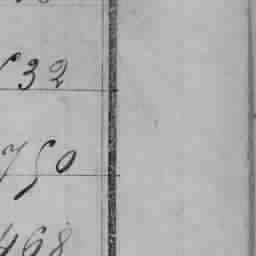 532
750
468